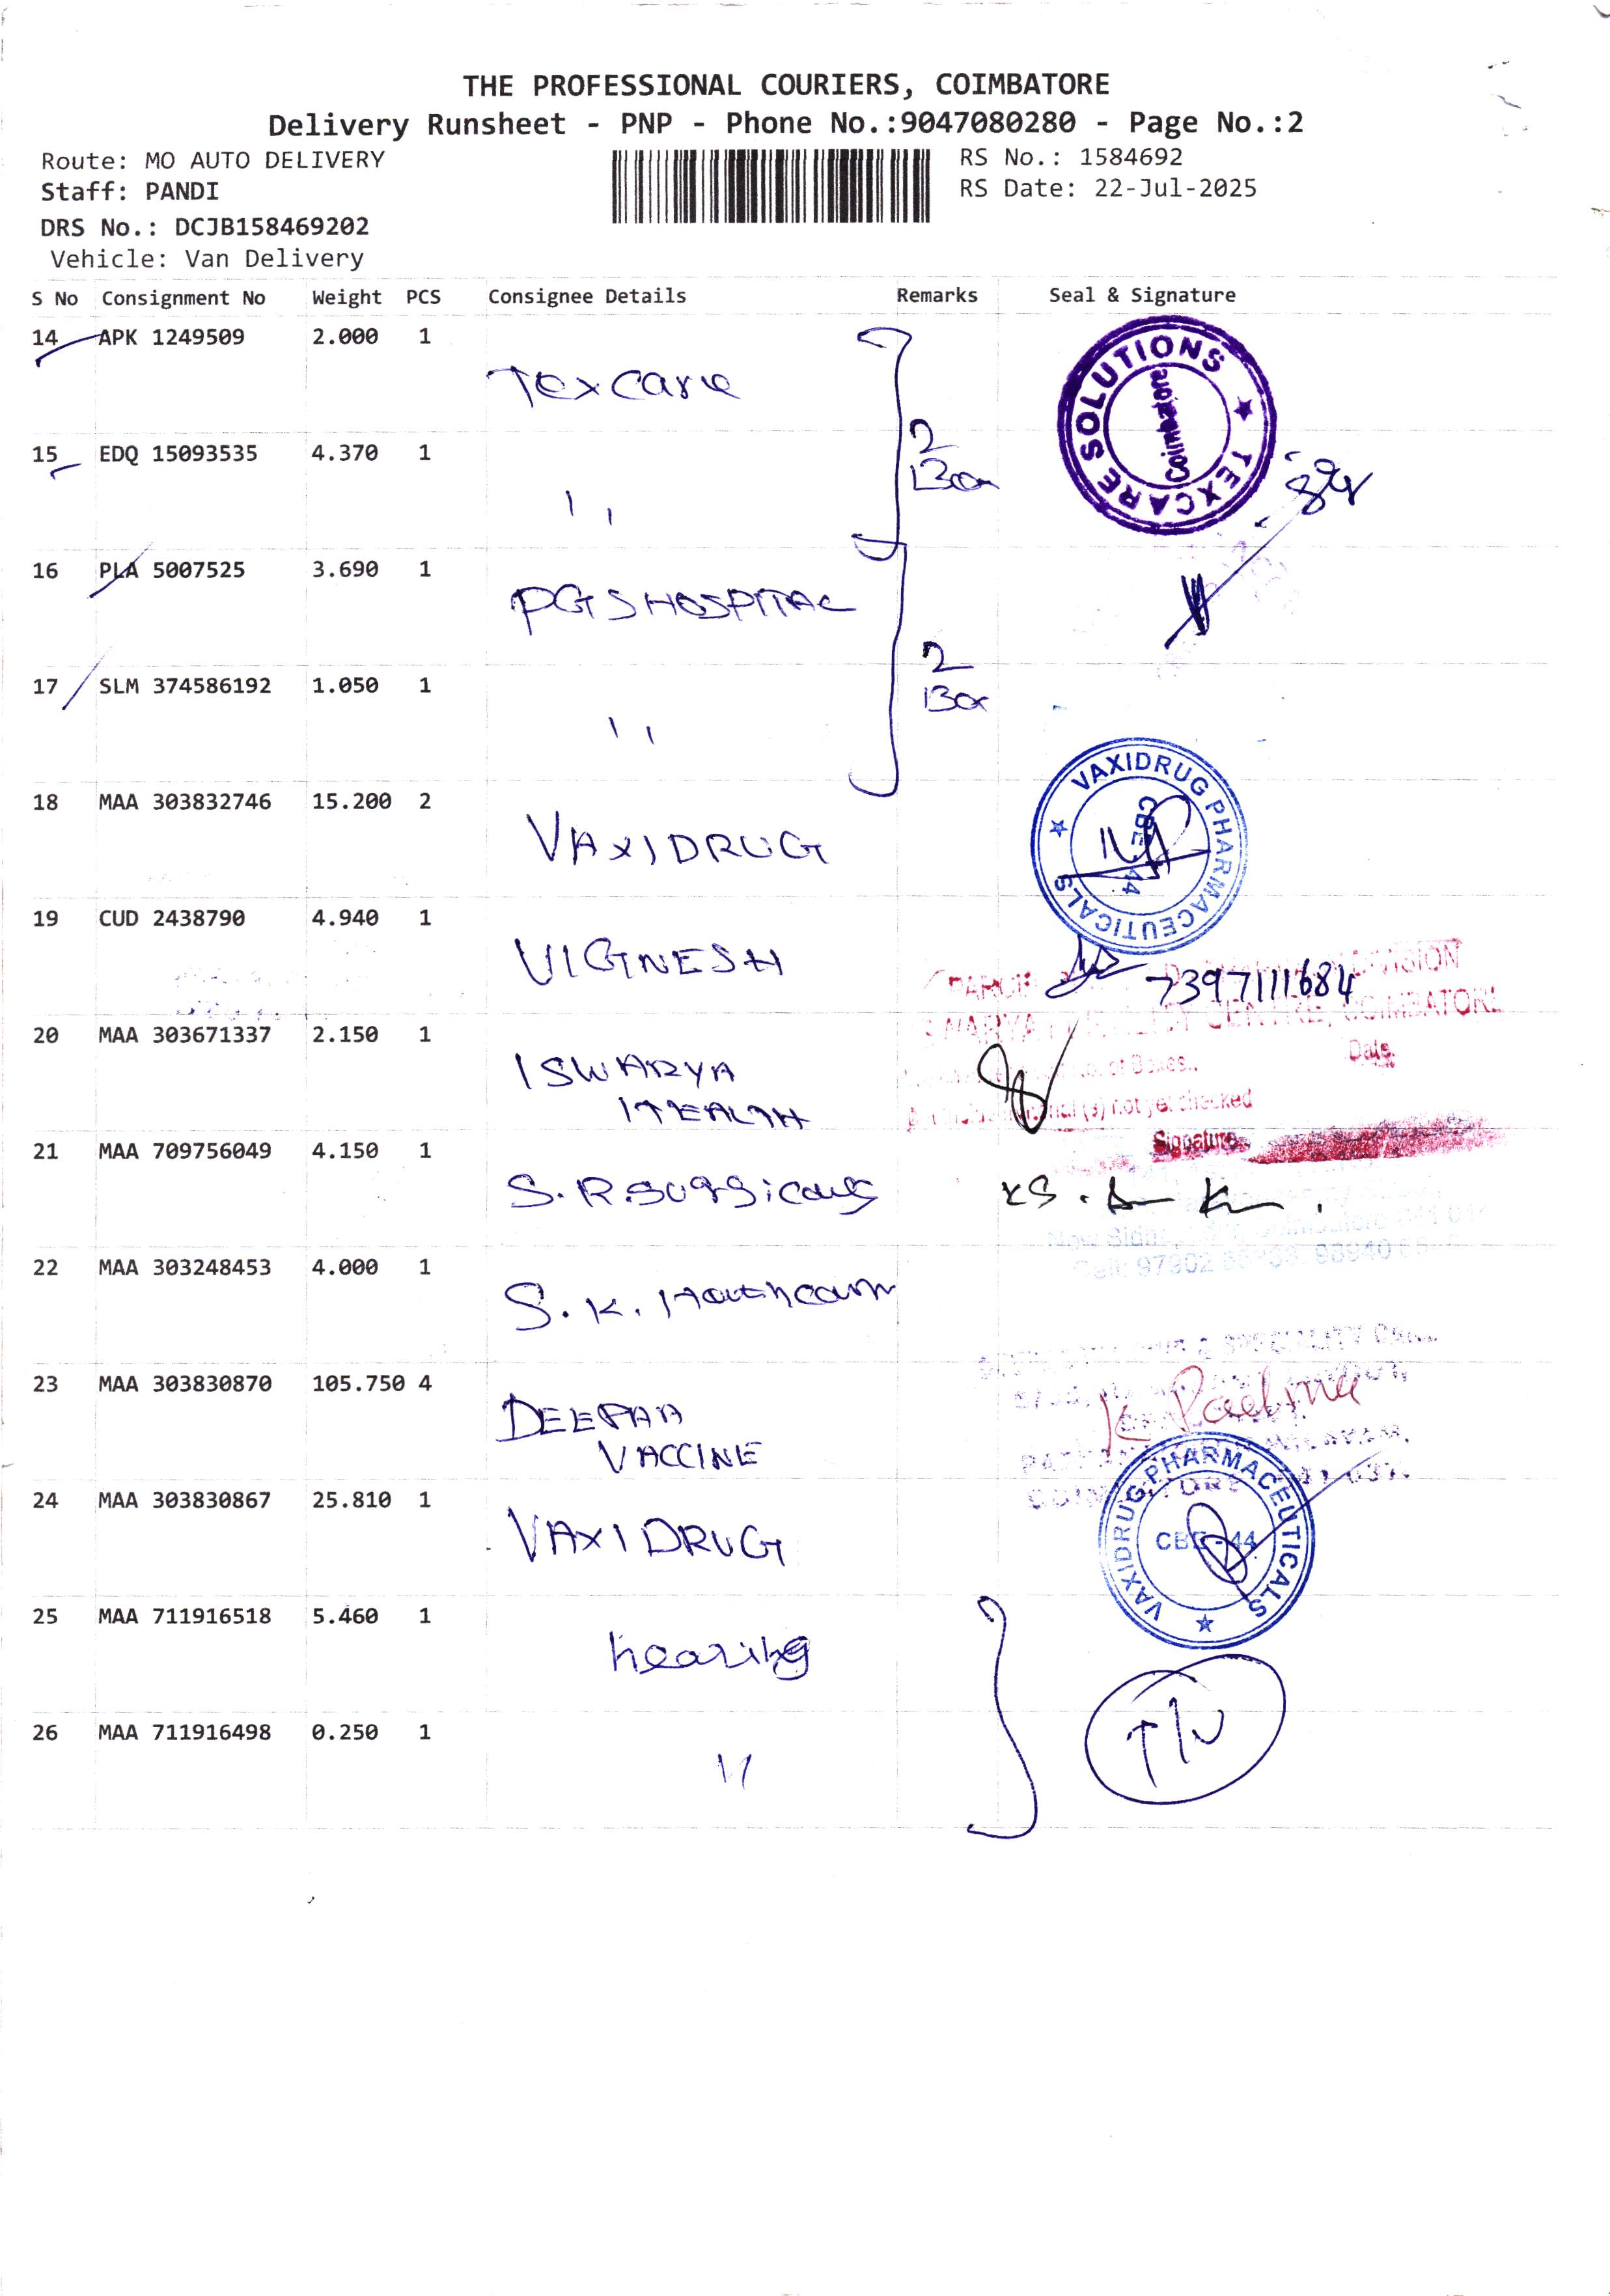 THE PROFESSIONAL COURIERS, COIMBATORE
Delivery Runsheet - PNP - Phone No.:9047080280 - Page No.:2
Route: MO AUTO DELIVERY
Staff: PANDI
DRS No.: DCJB158469202
Vehicle: Van Delivery
RS No.: 1584692
RS Date: 22-Jul-2025
S No Consignment No Weight PCS Consignee Details Remarks Seal & Signature
14 APK 1249509 2.000 1 Texcare
TEXCARE SOLUTIONS ★ Coimbatore
15 EDQ 15093535 4.370 1 ,,
2 Box
16 PLA 5007525 3.690 1 PGS HOSPITAL
17 SLM 374586192 1.050 1 ,,
2 Box
18 MAA 303832746 15.200 2 VAXIDRUG
VAXIDRUG PHARMACEUTICALS ★ CBE-44
19 CUD 2438790 4.940 1 VIGNESH
7397111684
20 MAA 303671337 2.150 1 ISWARYA
HEALTH
CENTRE, COIMBATORE
of Boxes..
Date
(s) not yet checked
Signature
21 MAA 709756049 4.150 1 S.R.Surgicals
22 MAA 303248453 4.000 1 S.K. Healthcare
23 MAA 303830870 105.750 4 DEEPAA
VACCINE
K Padma
24 MAA 303830867 25.810 1 VAXIDRUG
VAXIDRUG PHARMACEUTICALS ★ CBE-44
25 MAA 711916518 5.460 1 hearing
26 MAA 711916498 0.250 1 ,,